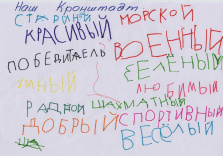 Наш Кронштадт
СТАРИННЫЙ МОРСКОЙ
КРАСИВЫЙ
ВОЕННЫЙ
ПОБЕДИТЕЛЬ
ЗЕЛЁНЫЙ
УМНЫЙ ЛЮБИМЫЙ
РАДНОЙ ШАХМАТНЫЙ
ДОБРЫЙ СПОРТИВНЫЙ
ВЕСЁЛЫЙ